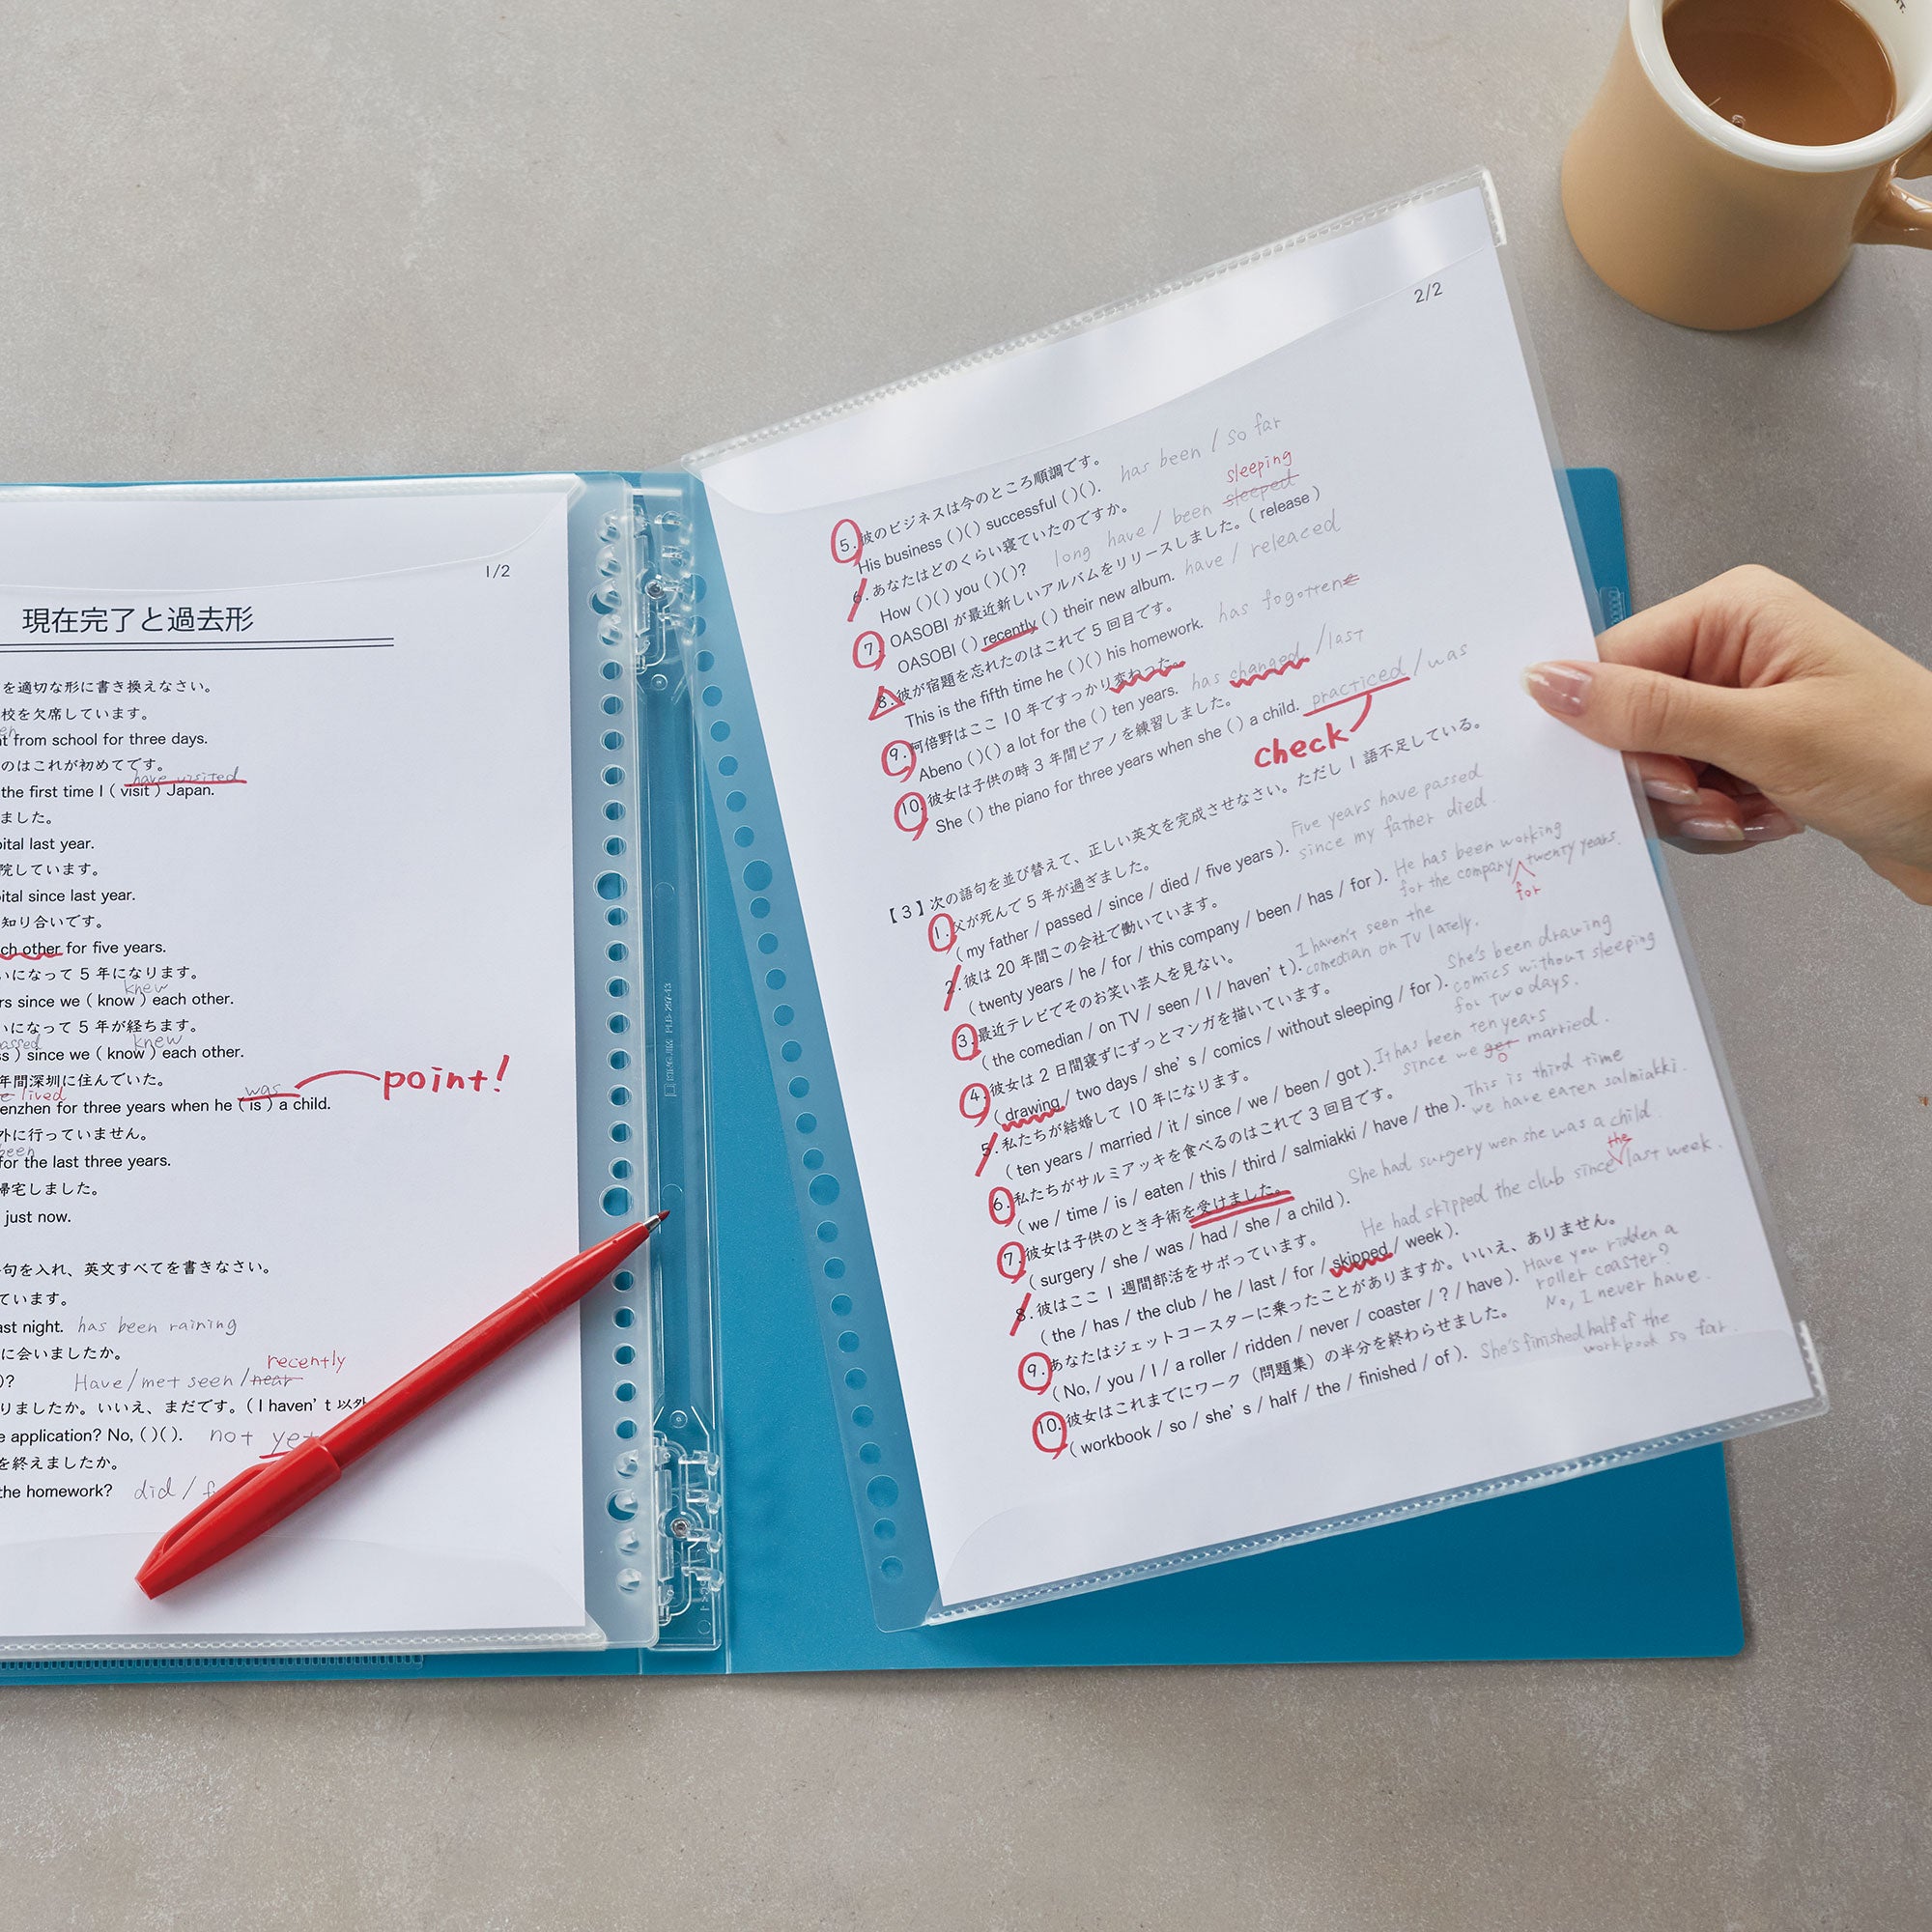 1/2
現在完了と過去形
を適切な形に書き換えなさい。
校を欠席しています。
t from school for three days.
のはこれが初めてです。
have visited
the first time I ( visit ) Japan.
ました。
pital last year.
院しています。
pital since last year.
知り合いです。
ch other for five years.
いになって 5 年になります。
knew
rs since we ( know ) each other.
いになって 5 年が経ちます。
passed knew
ss ) since we ( know ) each other.
年間深圳に住んでいた。
lived was point!
enzhen for three years when he ( is ) a child.
外に行っていません。
been
for the last three years.
帰宅しました。
just now.
句を入れ、英文すべてを書きなさい。
ています。
ast night. has been raining
に会いましたか。
recently
)? Have/met seen /near
りましたか。いいえ、まだです。( I haven't 以外
e application? No, ( )( ). not yet
を終えましたか。
the homework? did / f
2/2
5. 彼のビジネスは今のところ順調です。
His business ( )( ) successful ( )( ). has been / so far
6. あなたはどのくらい寝ていたのですか。
sleeping
How ( )( ) you ( )( )? long have / been sleeped
7. OASOBI が最近新しいアルバムをリリースしました。( release )
OASOBI ( ) recently ( ) their new album. have / released
8. 彼が宿題を忘れたのはこれで 5 回目です。
This is the fifth time he ( )( ) his homework. has fogottene
9. 阿倍野はここ 10 年ですっかり変わった。
Abeno ( )( ) a lot for the ( ) ten years. has changed /last
10. 彼女は子供の時 3 年間ピアノを練習しました。
She ( ) the piano for three years when she ( ) a child. practiced / was
check
【 3 】次の語句を並び替えて、正しい英文を完成させなさい。ただし 1 語不足している。
1. 父が死んで 5 年が過ぎました。
( my father / passed / since / died / five years ). Five years have passed
since my father died.
2. 彼は 20 年間この会社で働いています。
( twenty years / he / for / this company / been / has / for ). He has been working
for the company twenty years.
for
3. 最近テレビでそのお笑い芸人を見ない。
( the comedian / on TV / seen / I / haven't ). I haven't seen the
comedian on TV lately.
4. 彼女は 2 日間寝ずにずっとマンガを描いています。
( drawing / two days / she's / comics / without sleeping / for ). She's been drawing
comics without sleeping
for two days.
5. 私たちが結婚して 10 年になります。
( ten years / married / it / since / we / been / got ). It has been ten years
since we get married.
o
6. 私たちがサルミアッキを食べるのはこれで 3 回目です。
( we / time / is / eaten / this / third / salmiakki / have / the ). This is third time
we have eaten salmiakki.
7. 彼女は子供のとき手術を受けました。
( surgery / she / was / had / she / a child ). She had surgery wen she was a child.
8. 彼はここ 1 週間部活をサボっています。
the
( the / has / the club / he / last / for / skipped / week ). He had skipped the club since last week.
9. あなたはジェットコースターに乗ったことがありますか。いいえ、ありません。
( No, / you / I / a roller / ridden / never / coaster / ? / have ). Have you ridden a
roller coaster?
No, I never have.
10. 彼女はこれまでにワーク（問題集）の半分を終わらせました。
( workbook / so / she's / half / the / finished / of ). She's finished half of the
workbook so far.